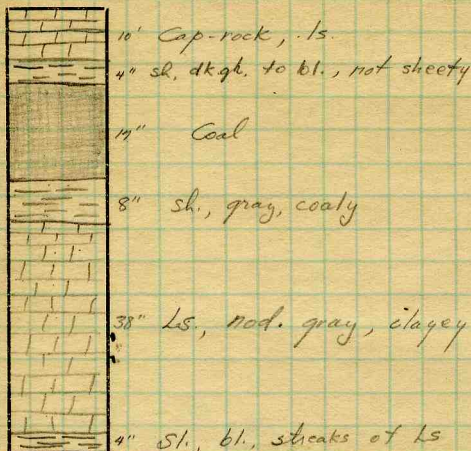 10' Cap-rock, ls.
4" sh, dk gh. to bl., not sheety
Coal
8" sh., gray, coaly
38" Ls., nod. gray, clayey
4" Sl., bl., streaks of Ls